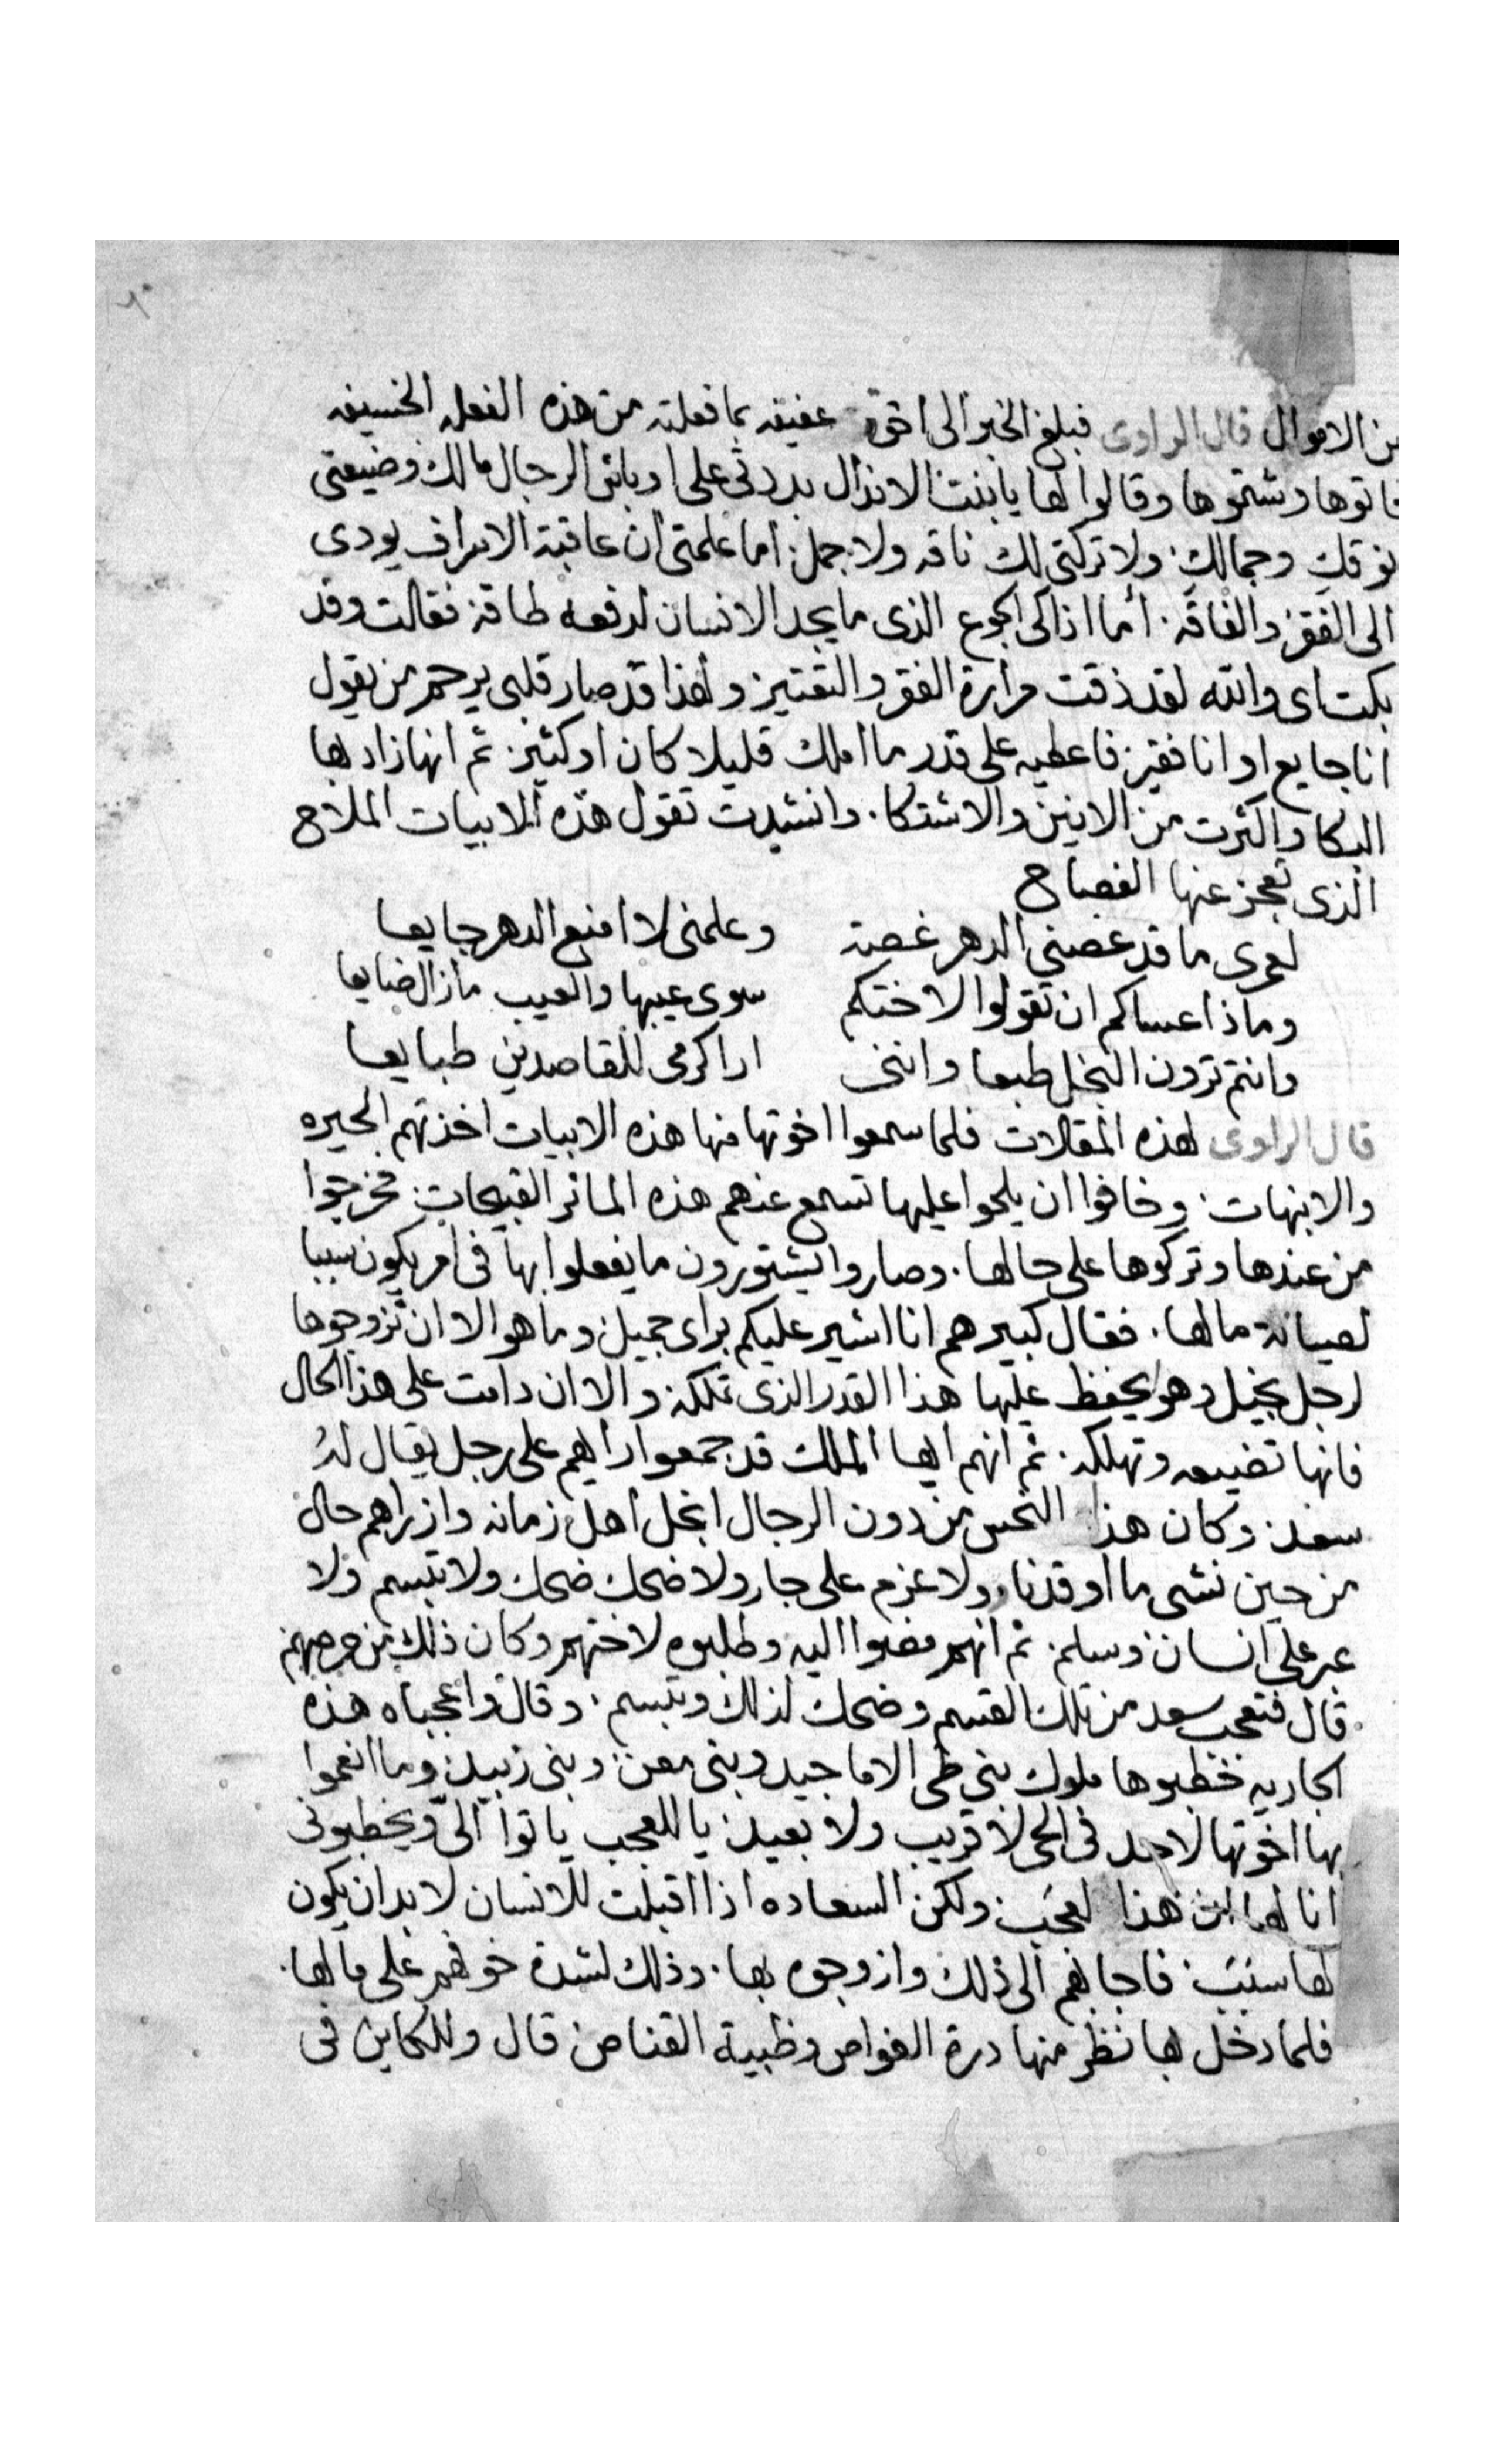 من الاموال قال الراوى فبلغ الخبر الى اخوة عفيفه بما فعلته من هذه الفعله الخسيفه
فاتوها وشتموها وقالوا لها يا بنت الانذال بددتى على اوباش الرجال مالك وضيعتى
نوقك وجمالك ولا تركتى لك ناقه ولا جمل اما علمتى ان عاقبة الاسراف يودى
الى الفقر والفاقه أما اذاكى الجوع الذى ما يجد الانسان لدفعه طاقه فقالت وقد
بكت اى والله لقد ذقت مرارة الفقر والتقتير ولهذا قد صار قلبى يرحم من يقول
انا جايع او انا فقير فاعطيه على قدر ما املك قليلا كان او كثير ثم انها زاد بها
البكا واكثرت من الانين والاشتكا وانشدت تقول هذه الابيات الملاح
الذى تعجز عنها الفصاح
لعمرى ما قد عضنى الدهر غصة وعلمنى لا امنع الدهر جايعا
وماذا عساكم ان تقولوا لاختكم سوى عيبها والعيب مازال ضايعا
وانتم ترون البخل طبعا واننى ارا كرمى للقاصدين طبايعا
قال الراوى لهذه المقالات فلما سمعوا اخوتها منها هذه الابيات اخذتهم الحيره
والانبهات وخافوا ان يلحوا عليها تسمع عنهم هذه الماثر القبيحات فخرجوا
من عندها وتركوها على حالها وصاروا يشتورون ما يفعلوا بها فى امر يكون سببا
لصيانة مالها فقال كبيرهم انا اشير عليكم براى جميل وما هو الا ان تزوجوها
لرجل بخيل وهو يحفظ عليها هذا القدر الذى تملكه والا ان دامت على هذا الحال
فانها تضيعه وتهلكه ثم انهم ايها الملك قد جمعوا رايهم على رجل يقال له
سعد وكان هذا النحس من دون الرجال ابخل اهل زمانه وازراهم حاله
من حين نشى ما اوقد نار ولا عزم على جار ولا ضحك ضحك ولا تبسم ولا
عبر على انسان وسلم ثم انهم مضوا اليه وطلبوه لاختهم وكان ذلك من حرصهم
قال فتعجب سعد من تلك القسم وضحك لذلك وتبسم وقال واعجباه هذه
الجاريه خطبوها ملوك بنى طى الاماجيد وبنى معن وبنى زبيد وما انعموا
بها اخوتها لاحد فى الحى لا قريب ولا بعيد يا للعجب ياتوا الىّ ويخطبونى
انا لها ان هذا لعجب ولكن السعاده اذا اقبلت للانسان لا بد ان يكون
لها سبب فاجابهم الى ذلك وازوجوه بها وذلك لشدة خوفهم على مالها
فلما دخل بها نظر منها درة الغواص وظبية القناص قال وللكاين فى